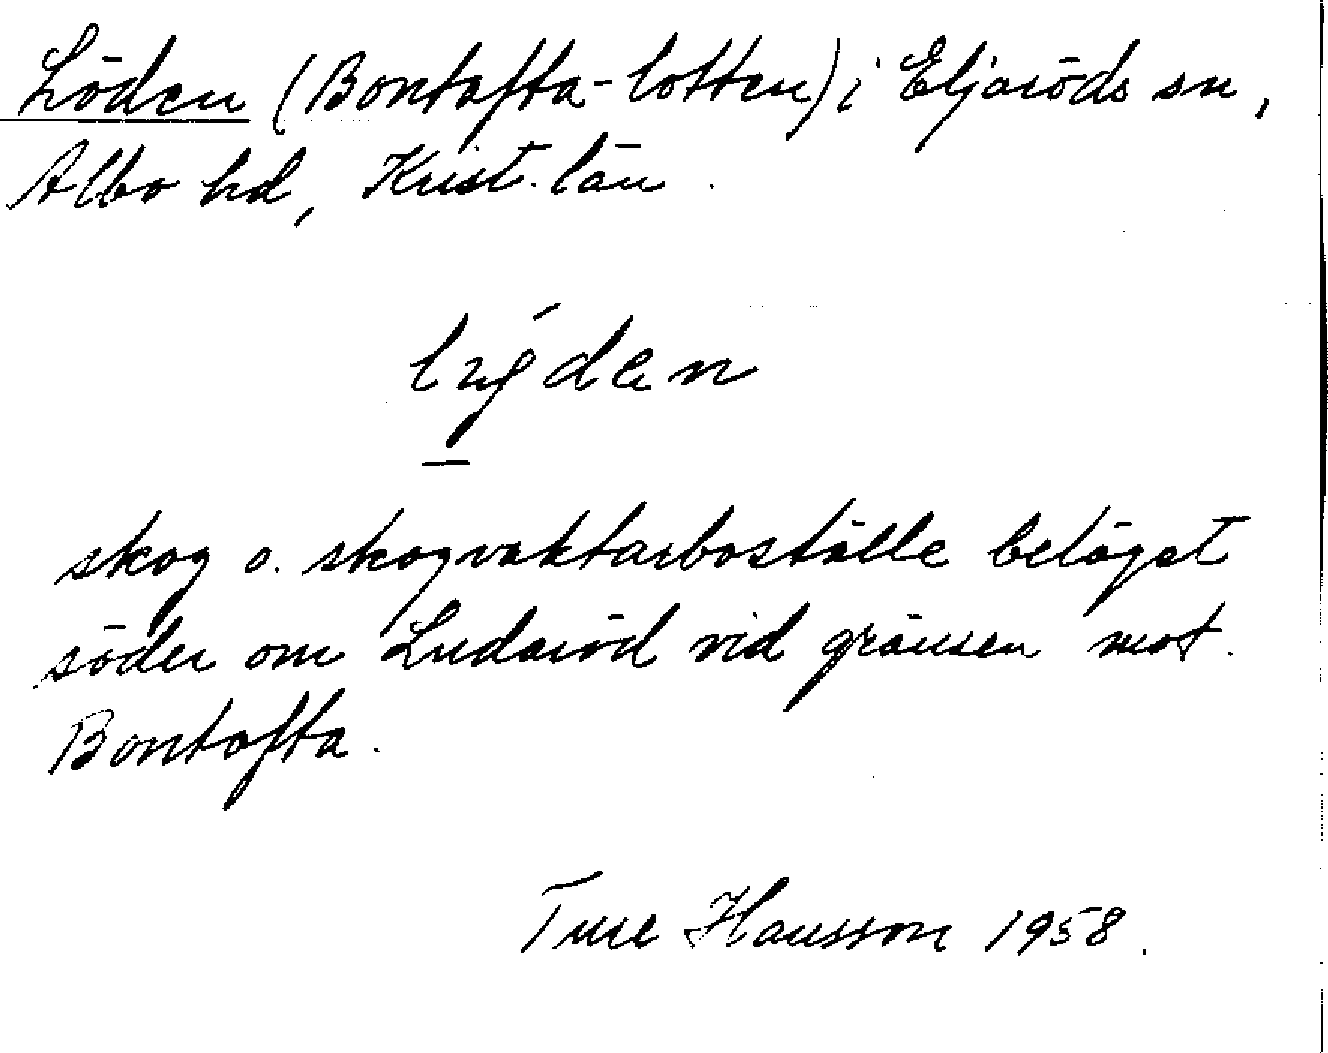 Löden (Bontofta-lotten) i Eljaröds sn,
Albo hd, Krist. län.
skog o. skogvaktarboställe beläget
söder om Ludaröd vid gränsen mot
Bontofta.
Ture Hansson 1958.